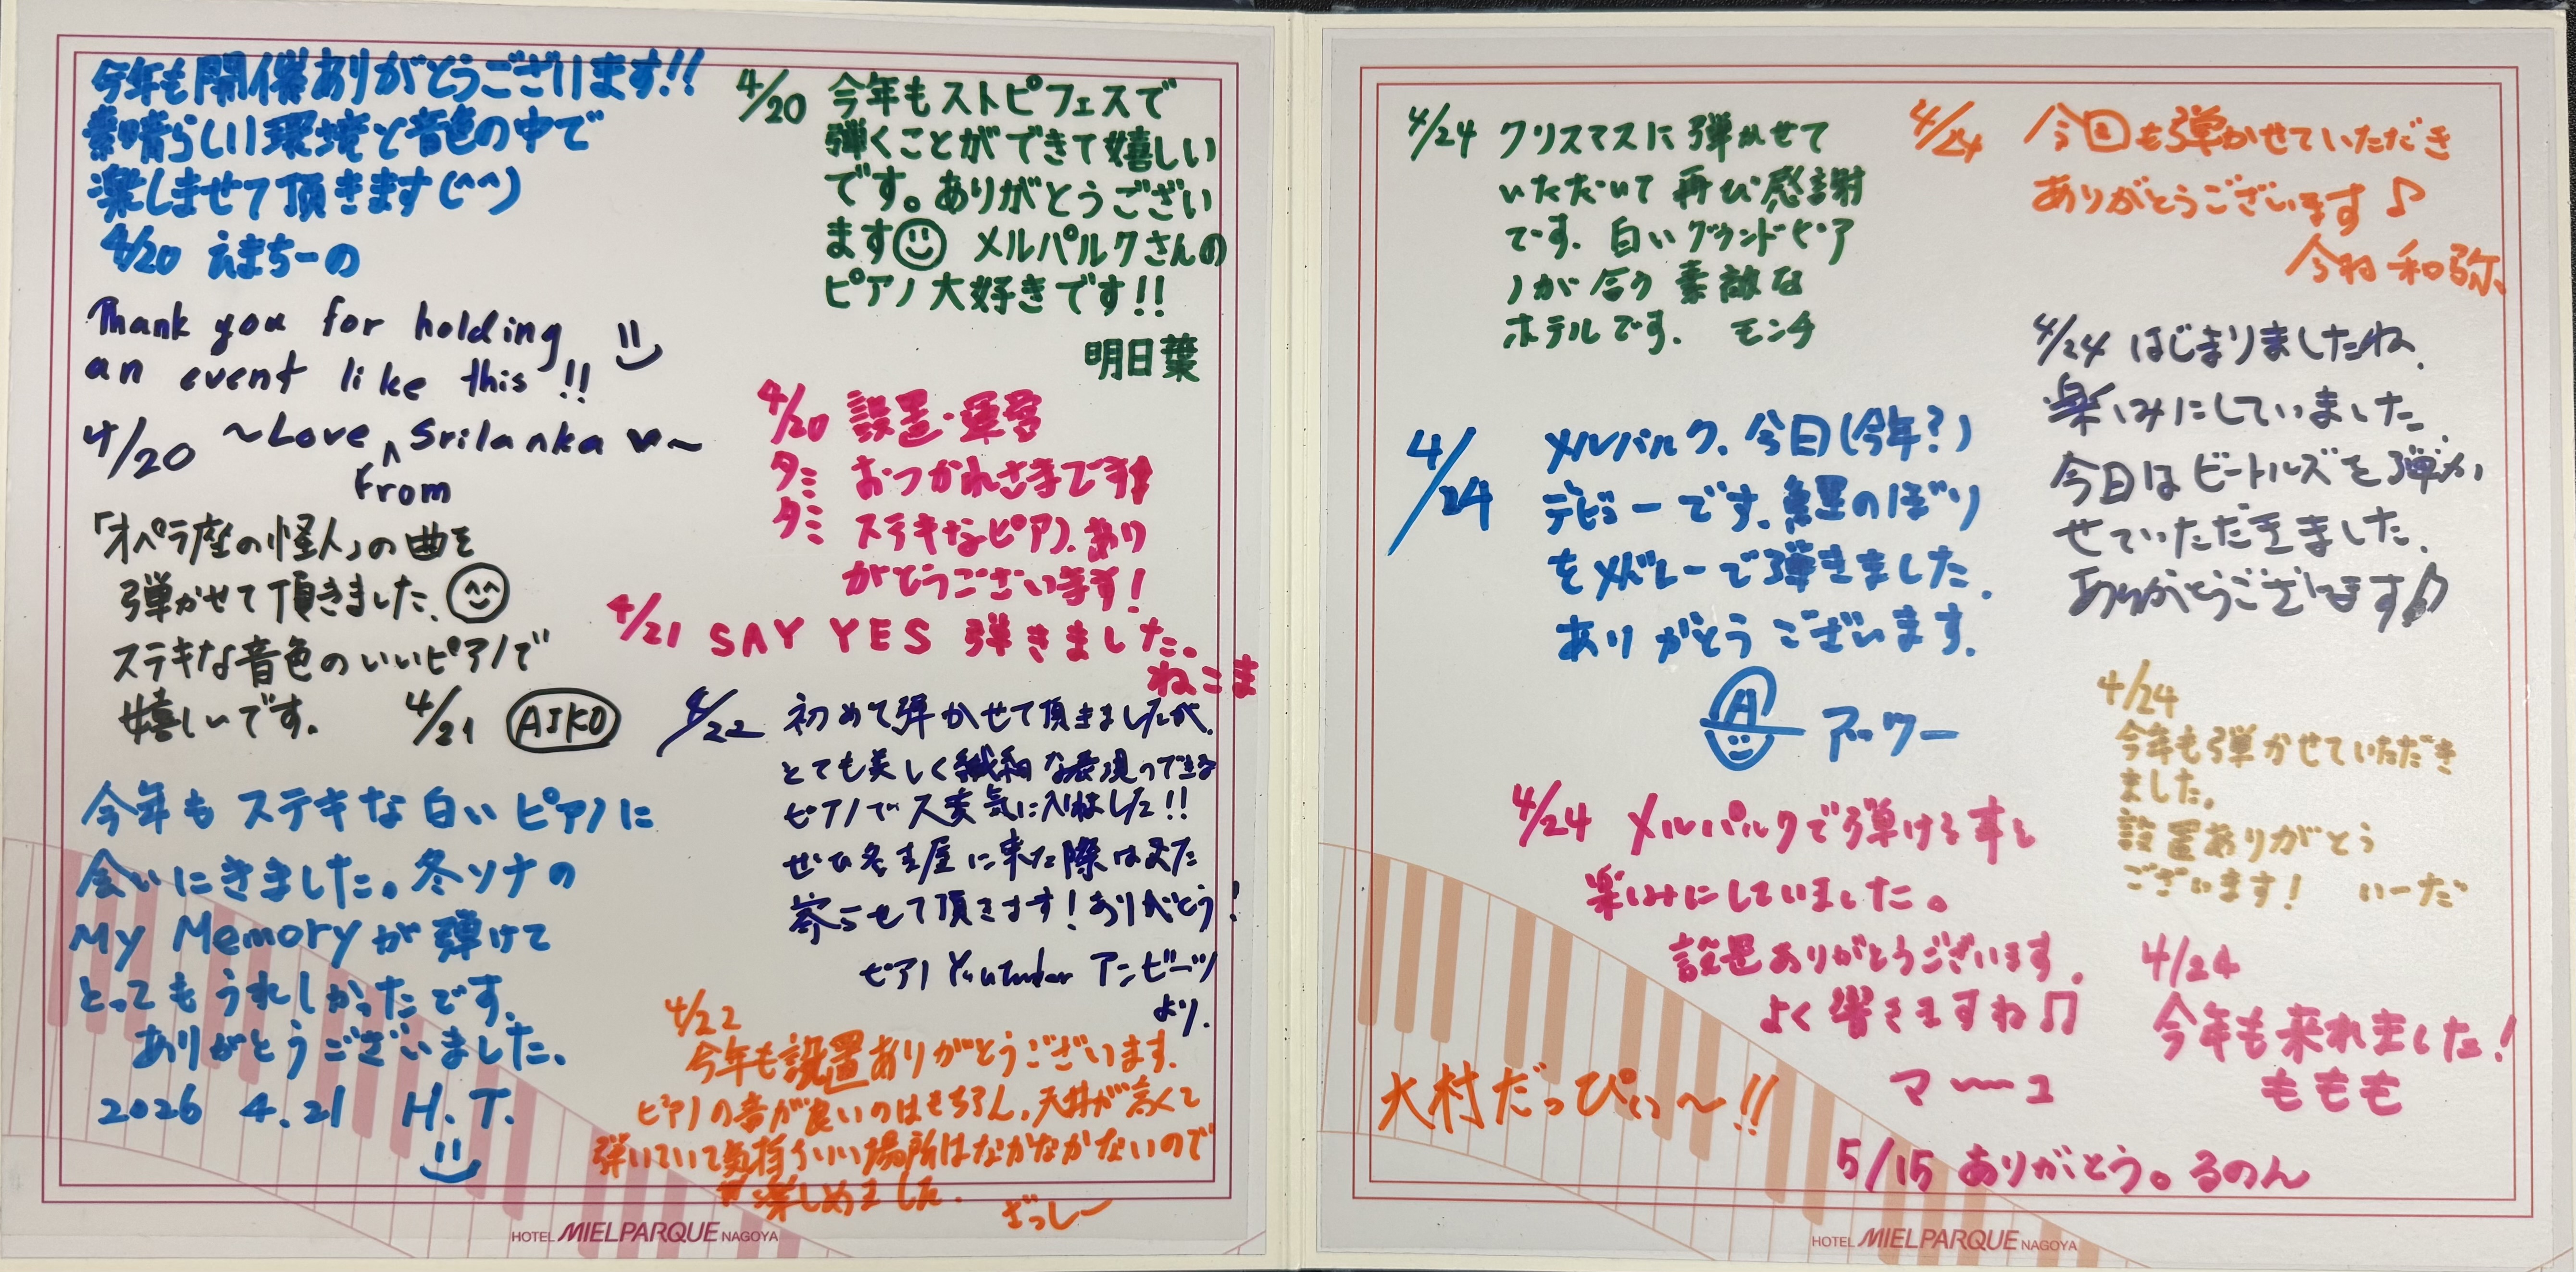 今年も開催ありがとうございます!!
素晴らしい環境と音色の中で
楽しませて頂きます(^^)
4/20 えまちーの
Thank you for holding
an event like this !!
4/20 ~Love from Srilanka ♥~
「オペラ座の怪人」の曲を
弾かせて頂きました。
ステキな音色のいいピアノで
嬉しいです。 4/21 AIKO
今年もステキな白いピアノに
会いにきました。冬ソナの
My Memoryが弾けて
とってもうれしかったです。
ありがとうございました。
2026 4.21 H.T.
4/20 今年もストピフェスで
弾くことができて嬉しい
です。ありがとうござい
ます メルパルクさんの
ピアノ大好きです!!
明日葉
4/20 設置・運営
タミ おつかれさまです
タミ ステキなピアノ、あり
がとうございます!
4/21 SAY YES 弾きました。
ねこま
4/22 初めて弾かせて頂きましたが、
とても美しく繊細な表現のできる
ピアノで大変気に入りました!!
ぜひ名古屋に来た際はまた
寄らせて頂きます!ありがとう!
ピアノ YouTuber アンビーツ
より.
4/22
今年も設置ありがとうございます.
ピアノの音が良いのはもちろん、天井が高くて
弾いていて気持ちいい場所はなかなかないので
楽しめました.
ざっしー
HOTEL MIELPARQUE NAGOYA
4/24 クリスマスに弾かせて
いただいて再び感謝
です. 白いグランドピア
ノが合う素敵な
ホテルです. モンチ
4/24 今回も弾かせていただき
ありがとうございます♪
今村 和弥
4/24 はじまりましたね.
楽しみにしていました.
今日はビートルズを弾か
せていただきました.
ありがとうございます♪
4/24 メルパルク、今日(今年?)
デビューです. 鯉のぼり
をメドレーで弾きました.
ありがとうございます.
A アッツー
4/24
今年も弾かせていただき
ました。
設置ありがとう
ございます! いーだ
4/24 メルパルクで弾ける事し
楽しみにしていました。
設置ありがとうございます.
よく響きますね♫
マ〜ユ
4/24
今年も来れました!
ももも
大村だっぴぃっ〜!!
5/15 ありがとう。るのん
HOTEL MIELPARQUE NAGOYA